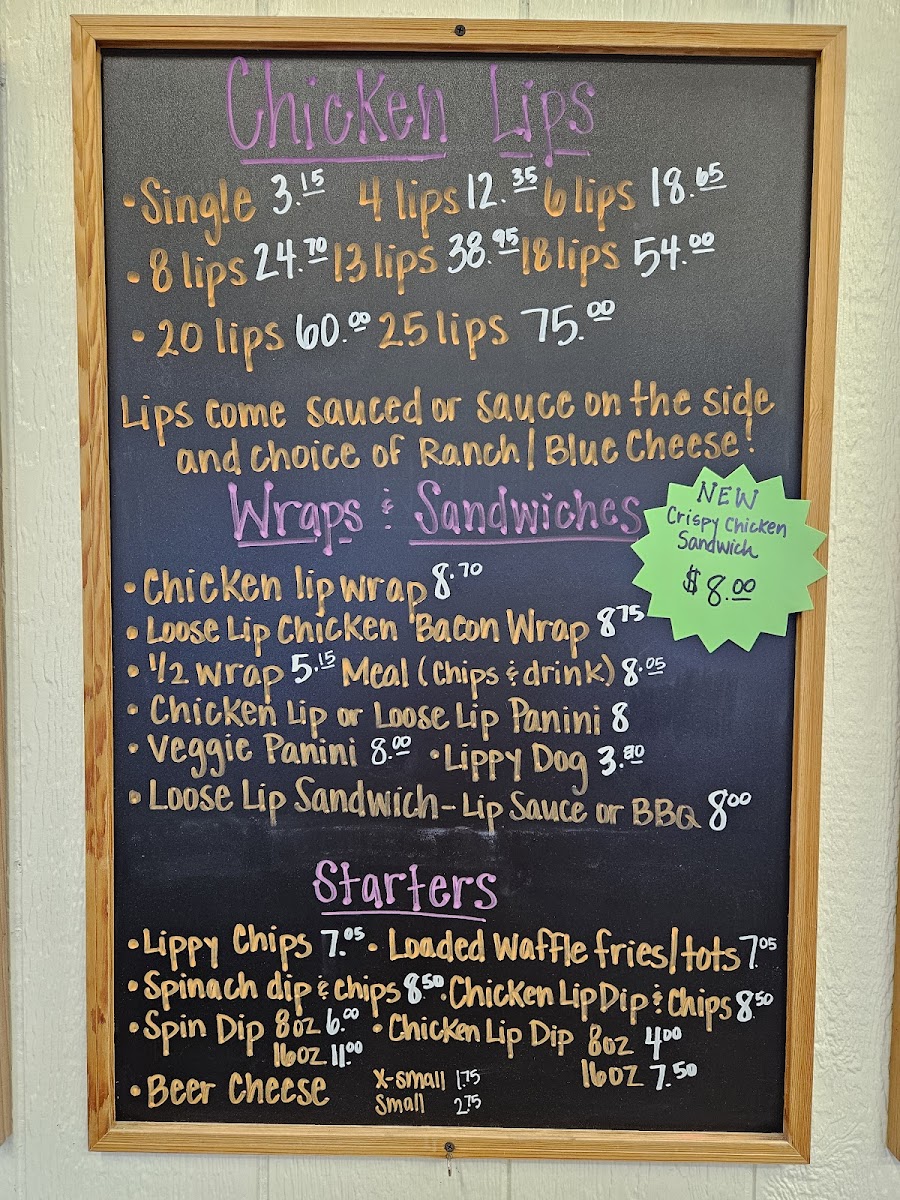 Chicken Lips
• Single 3.15 4 lips 12.35 6 lips 18.65
• 8 lips 24.70 13 lips 38.95 18 lips 54.00
• 20 lips 60.00 25 lips 75.00
Lips come sauced or sauce on the side
and choice of Ranch/Blue Cheese!
Wraps & Sandwiches
NEW
Crispy Chicken
Sandwich
$8.00
• Chicken lip wrap 8.70
• Loose Lip Chicken Bacon Wrap 8.75
• 1/2 wrap 5.15 Meal (chips & drink) 8.05
• Chicken Lip or Loose Lip Panini 8
• Veggie Panini 8.00 • Lippy Dog 3.80
• Loose Lip Sandwich - Lip Sauce or BBQ 8.00
Starters
• Lippy Chips 7.05 • Loaded Waffle fries/tots 7.05
• Spinach dip & chips 8.50 • Chicken Lip Dip & Chips 8.50
• Spin Dip 8oz 6.00 • Chicken Lip Dip 8oz 4.00
16oz 11.00 16oz 7.50
• Beer Cheese X-small 1.75
Small 2.75